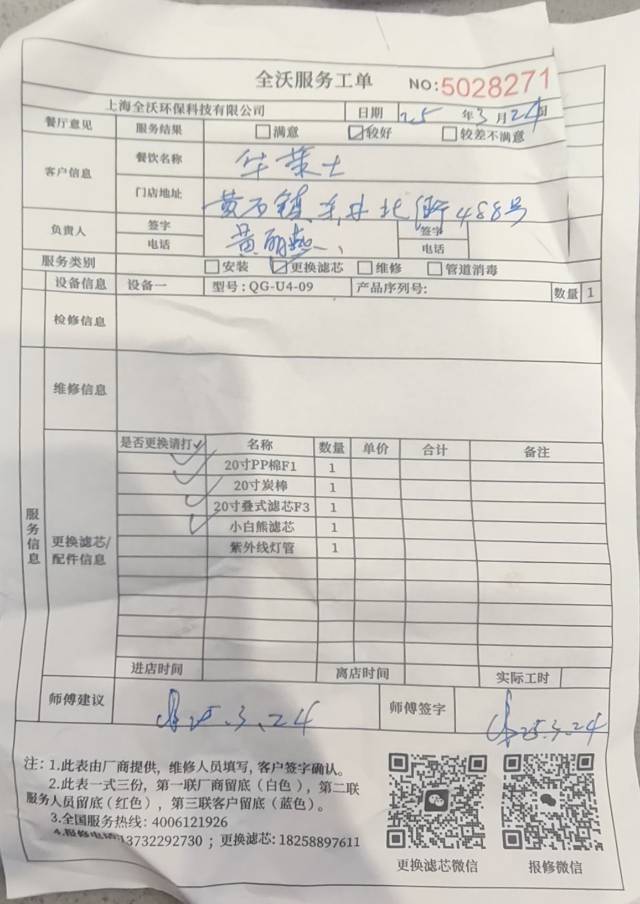 全沃服务工单 NO:5028271
上海全沃环保科技有限公司 日期 25 年 3 月 24 日
餐厅意见 服务结果 满意 较好 较差不满意
客户信息 餐饮名称 华莱士
门店地址 黄石镇东井北街488号
负责人 签字 黄丽燕 签字
电话 电话
服务类别 安装 更换滤芯 维修 管道消毒
设备信息 设备一 型号:QG-U4-09 产品序列号: 数量 1
检修信息
维修信息
服务信息
更换滤芯/配件信息
是否更换请打✓ 名称 数量 单价 合计 备注
✓ 20寸PP棉F1 1
✓ 20寸炭棒 1
✓ 20寸叠式滤芯F3 1
✓ 小白熊滤芯 1
紫外线灯管 1
进店时间 离店时间 实际工时
师傅建议 25.3.24 师傅签字 25.3.24
注:1.此表由厂商提供，维修人员填写,客户签字确认。
2.此表一式三份，第一联厂商留底(白色)，第二联
服务人员留底(红色)，第三联客户留底(蓝色)。
3.全国服务热线: 4006121926
4.报修电话:13732292730 ; 更换滤芯: 18258897611
更换滤芯微信 报修微信